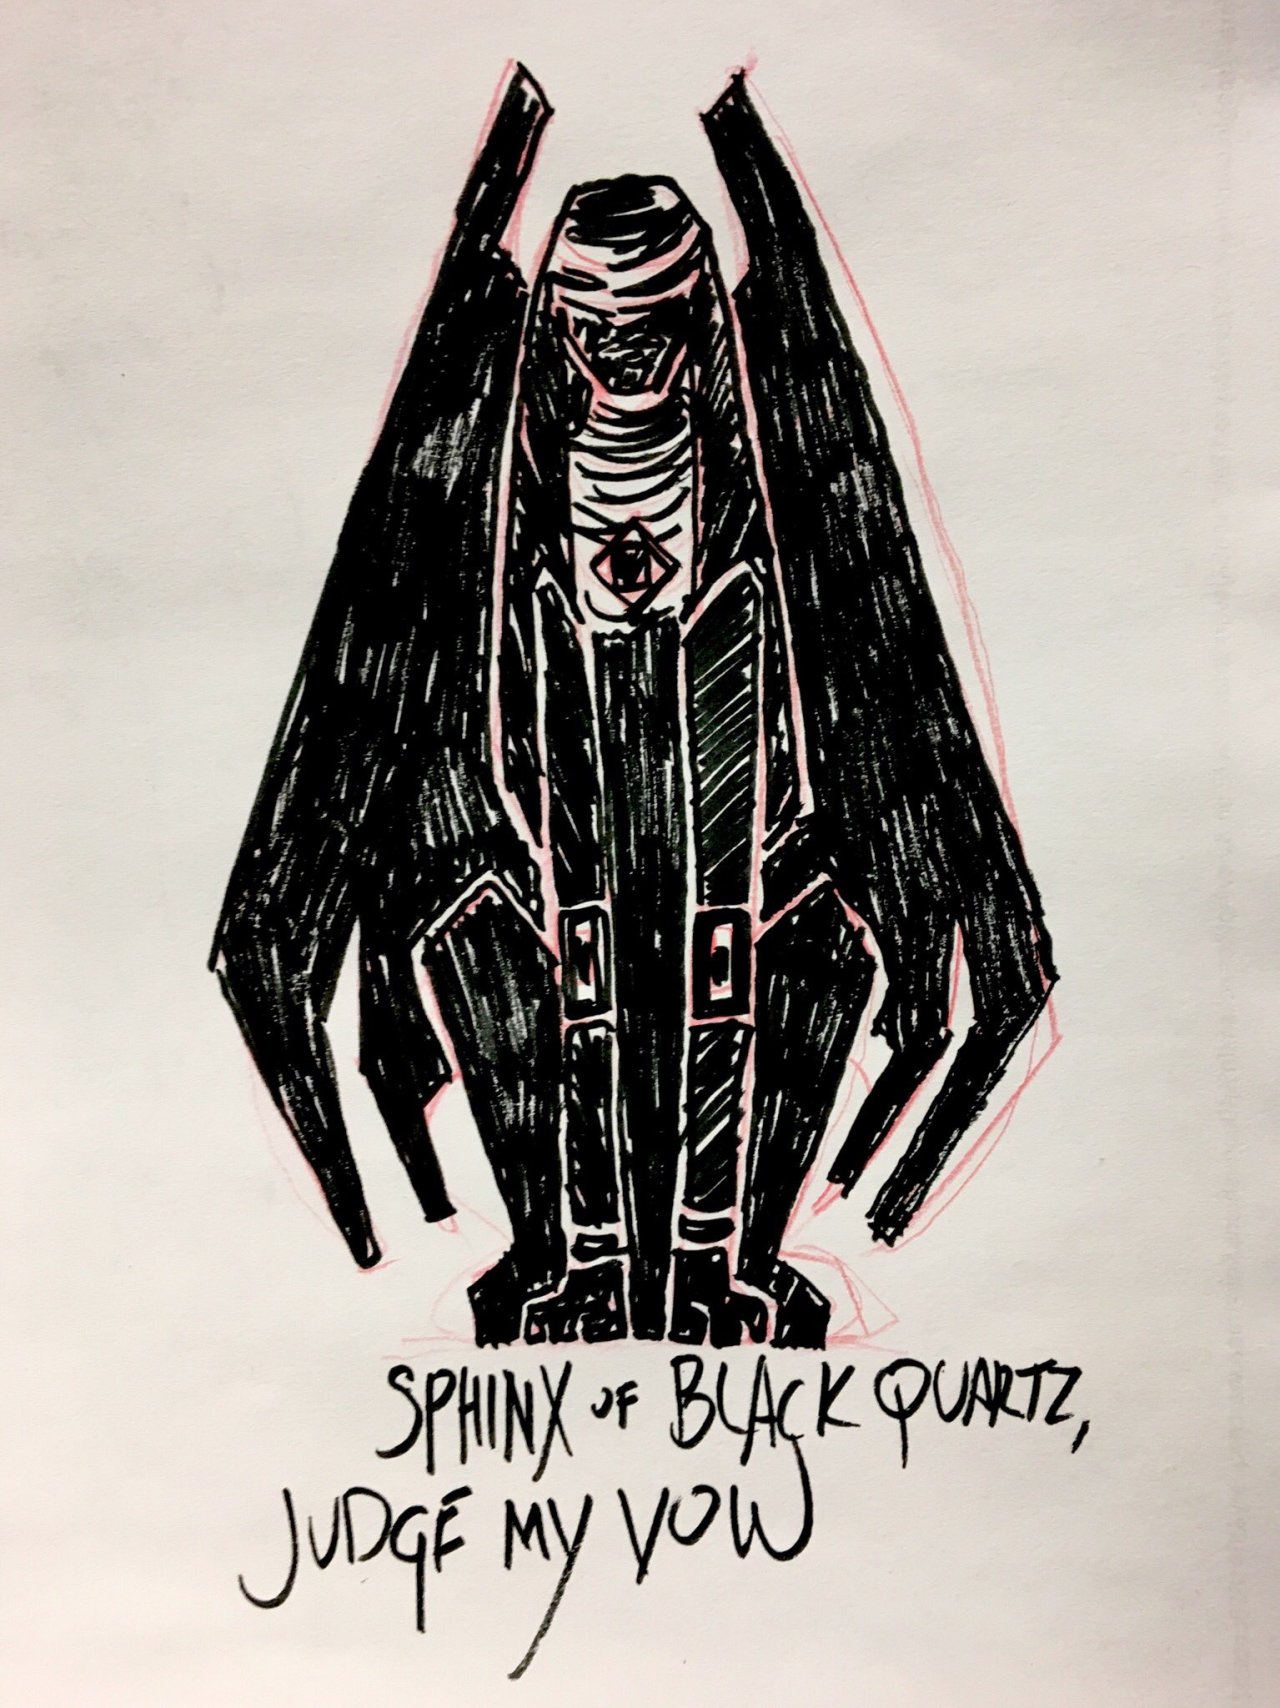 SPHINX OF BLACK QUARTZ,
JUDGE MY VOW